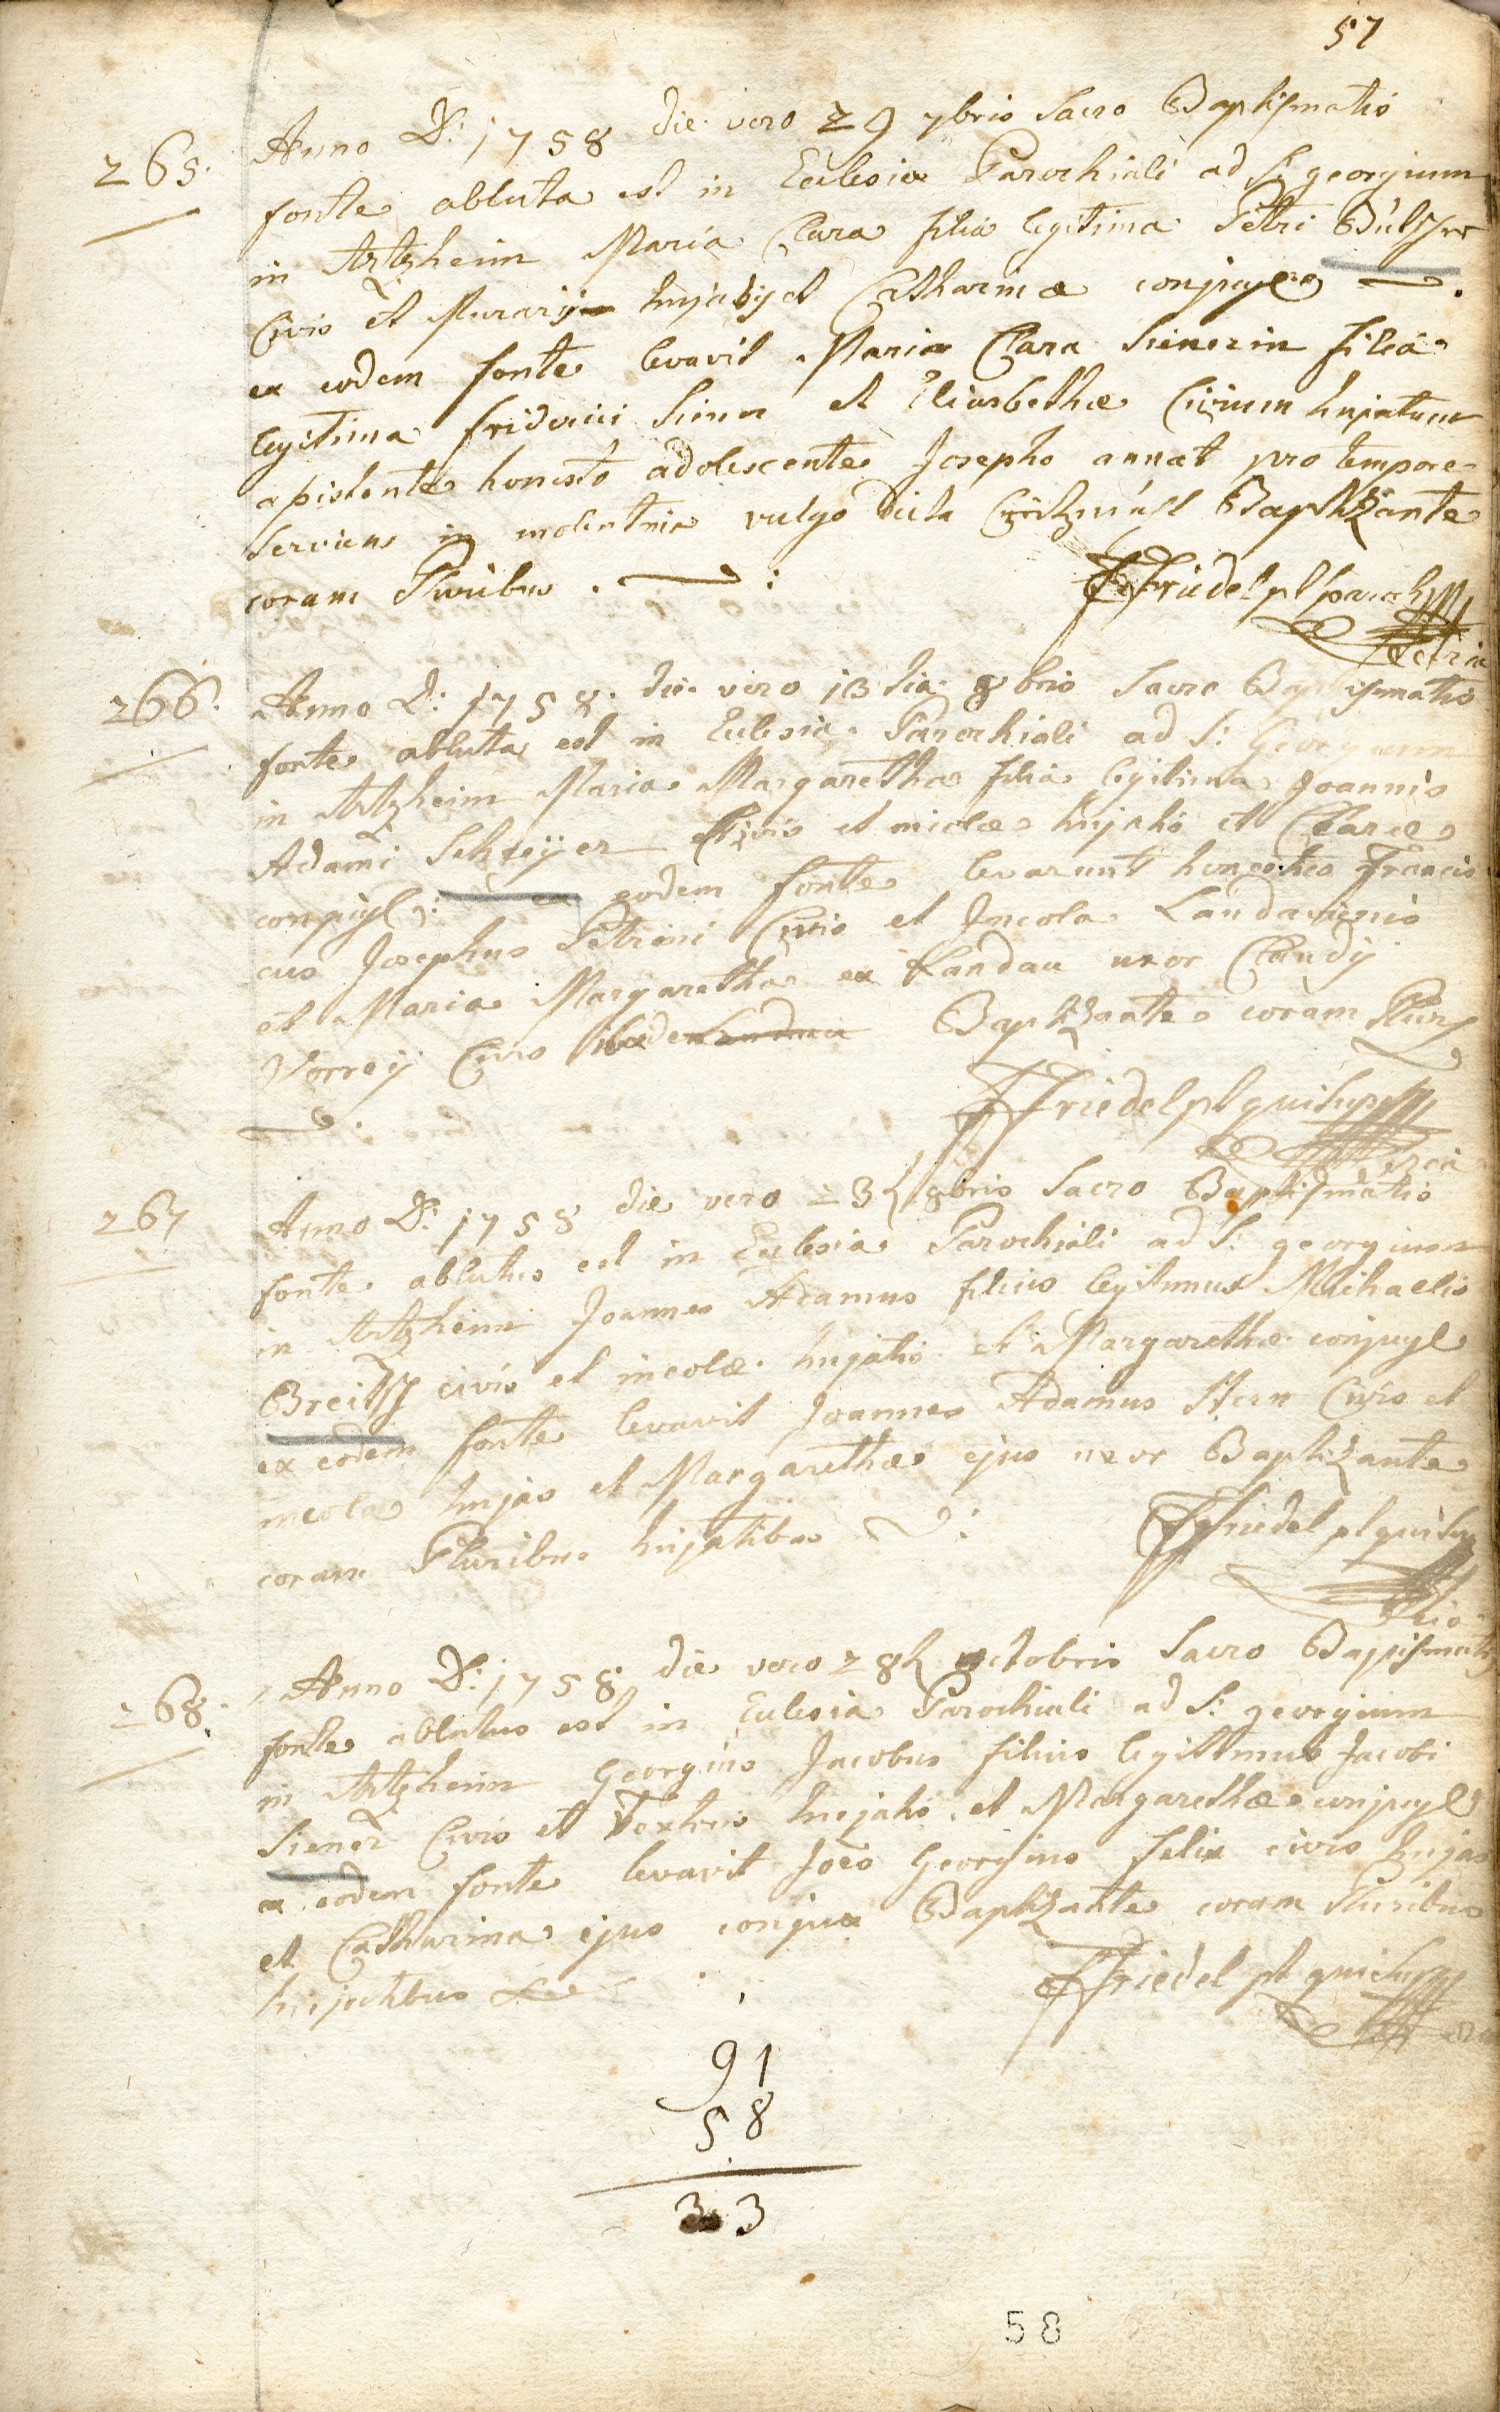 57
265.
Anno D: 1758 die vero 29 7bris Sacro Baptismatis
fonte abluta est in Ecclesia Parochiali ad S: georgium
in Artzheim Maria Clara filia legitima Petri
Civis et Murarij hujatis et Catharinæ conjugum
ex eodem fonte levavit Maria Clara Sienerin filia
legitima friderici Siener et Elisabethæ Civium hujatum
assistente honesto adolescente Josepho annat pro tempore
Serviens in molentnia vulgo dicta Baptizante
coram Pluribus . :
F Friedel pl parochus
266.
Anno D: 1758. die vero 13tia 8bris Sacro Baptismatis
fonte abluta est in Eclesia Parochiali ad S: Georgium
in Artzheim Maria Margaretha filia legitima Joannis
Adami Schreijer Civis et incolæ hujatis et Claræ
conjugum: ex eodem fonte levarunt honestus Francis
cus Josephus Petrini Civis et Incola Landaviensis
et Maria Margaretha ex Landau uxor Claudij
Vorreij Civis ibidem Baptizante coram Pluribus
F Friedel pl qui supra
267
Anno D: 1758 die vero 23 8bris Sacro Baptismatis
fonte ablutus est in Eclesia Parochiali ad S: georgium
in Artzheim Joannes Adamus filius legitimus Michaelis
Breitsch civis et incolæ hujatis et Margarethæ conjugum
ex eodem fonte levavit Joannes Adamus Stern Civis et
incola hujas et Margaretha ejus uxor Baptizante
coram Pluribus hujatibus :
F Friedel pl qui supra
268.
Anno D: 1758 die vero 28 octobris Sacro Baptismatis
fonte ablutus est in Eclesia Parochiali ad S: georgium
in Artzheim Georgius Jacobus filius legittimus Jacobi
Siener Civis et Textoris hujatis et Margarethæ conjugum
ex eodem fonte levavit Joes Georgius felix civis hujas
et Catharina ejus conjux Baptizante coram Pluribus
hujatibus
F Friedel pl qui supra
91
58
33
58